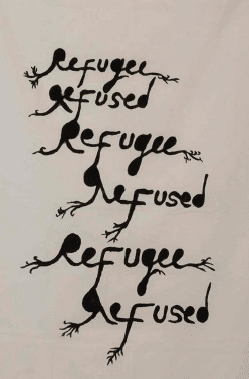 Refugee
Refused
Refugee
Refused
Refugee
Refused